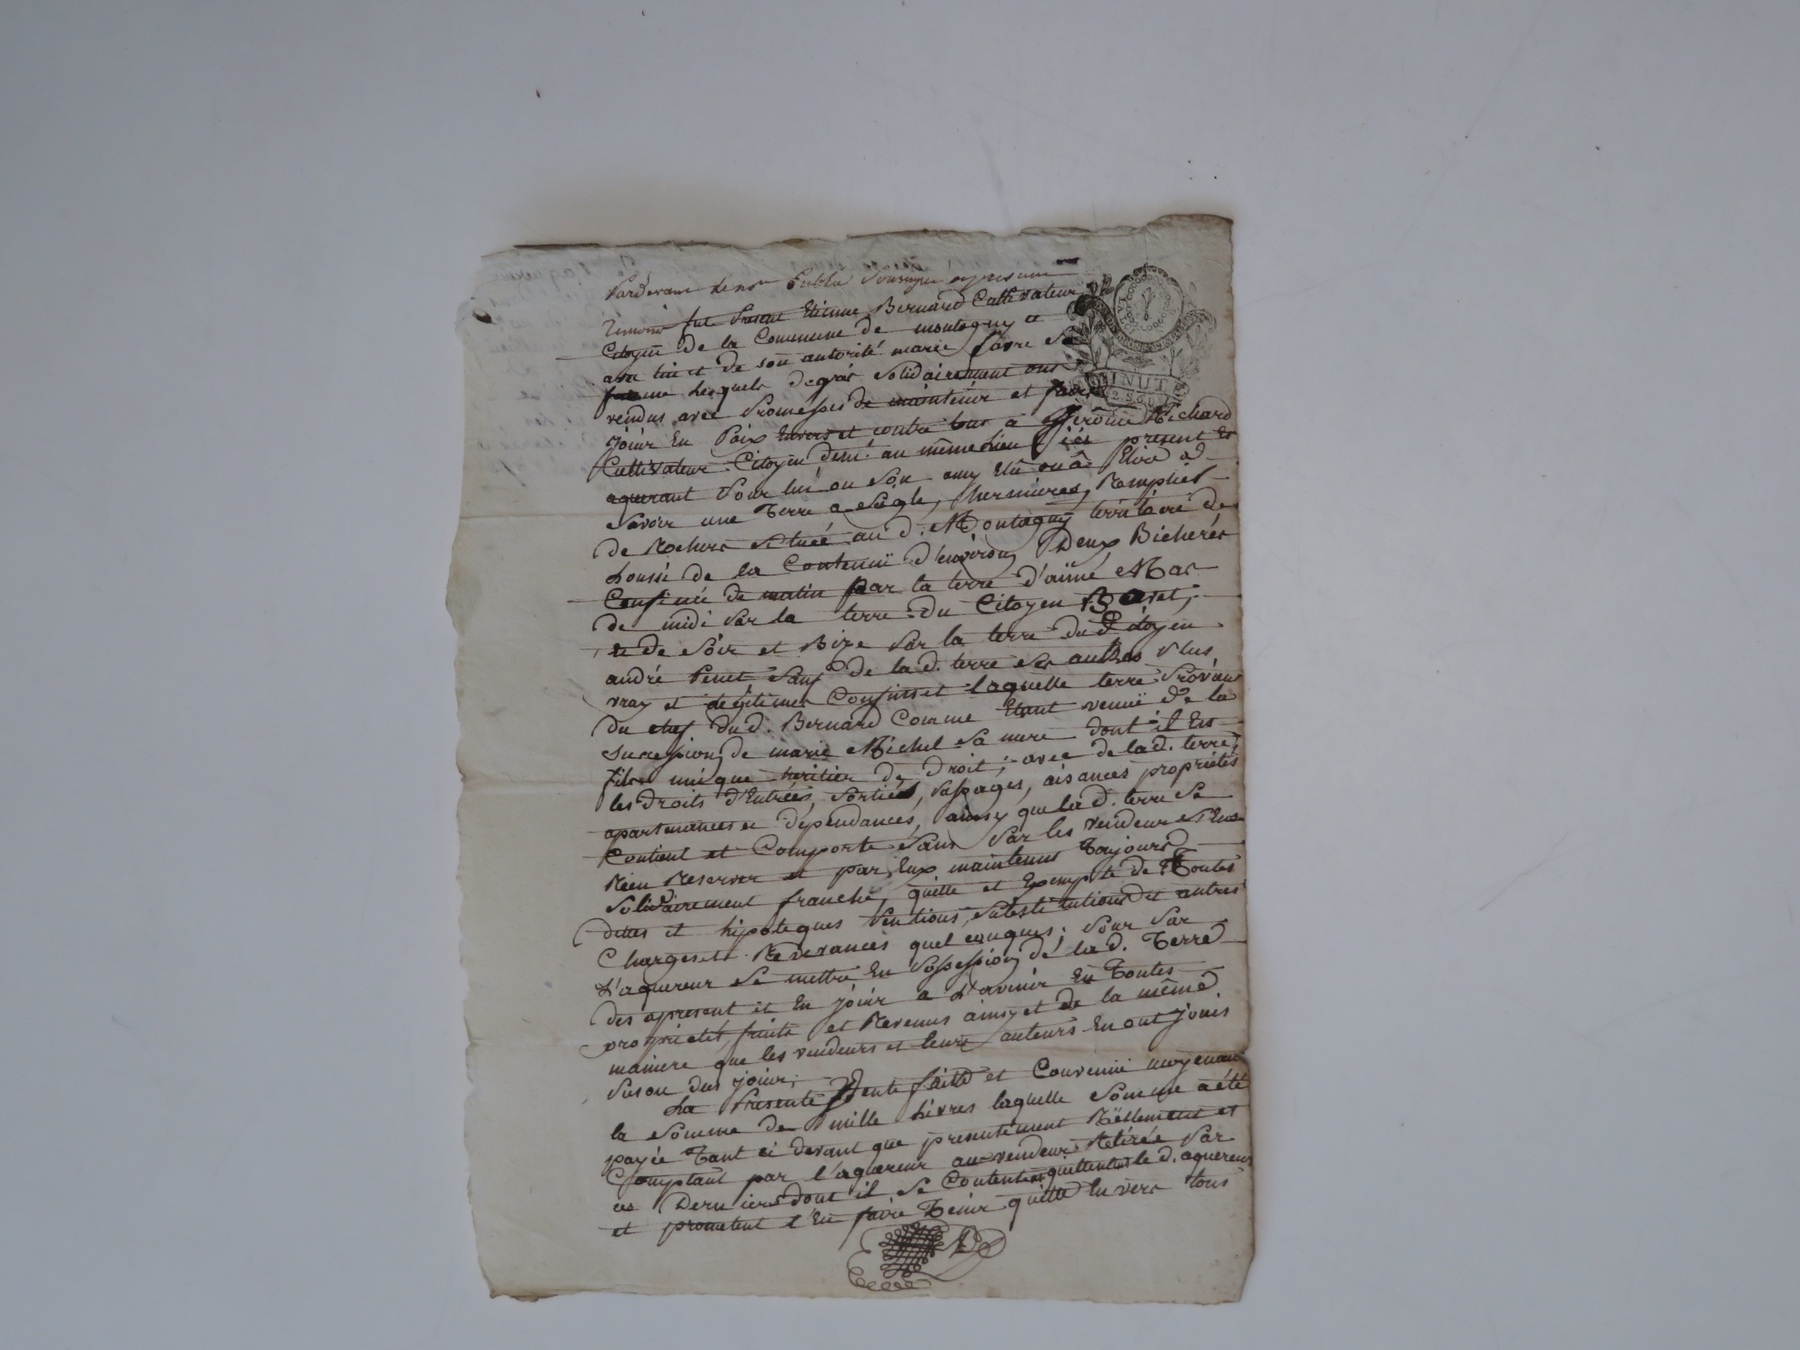 Pardevant le no.re Public Soussigné
Temoin fut Present Etienne Bernard Cultivateur
Citoyen de la Commune de montagny et
de son autorité marie favre Sa
femme lesquels degrés Solidairement ont
vendus avec Promesses de maintenir et faire
joüir En Paix Envers et contre tous a Jerôme Richard
Cultivateur Citoyen dem.t au même Lieu icé present Et
aquerant Pour lui ou Son amy Elû ou â Elire
Savoir une Terre a Siegle, hermières, Remplies
de Rochers située au d. Montagny territoire de
de la Contenuë d'environ Deux Bicherés
Confinée de matin Par la terre d'aimé Mas
de midi Par la terre du Citoyen
et de Soir et Bize Par la terre du d. Citoyen
andré Penet Sauf de la d. terre Ses autres Plus
vray et légitimes Confins et laquelle terre Provient
du chef du d. Bernard Comme Etant venuë de la
Succession de marie Michel Sa mere dont il Est
fils unique heritier de Droit; avec de la d. terre
les droits d'Entrées, Sorties, Passages, aisances propriétés
apartenances et dependances, ainsy que la d. terre Se
Contient et Comporte Sans Par les vendeurs S'En
Rien Reserver et par Eux maintenus Toujours
Solidairement franche, quitte et Exempte de Toutes
dettes et hipoteques Pentions, Substitutions et autres
Charges et Redevances quelconques; Pour Par
L'aquereur Se mettre En Possession de la d. Terre
des apresent et En joüir a L'avenir En Toutes
proprietés, fruits et Revenus ainsy et de la même
maniere que les vendeurs et leurs auteurs En ont jouis
Pu ou dus joüir;
La Presente Vente faite et Convenuë moyenant
la Somme de mille Livres laquelle Somme a été
payée Tant ci devant que presentement Réellement et
Comptant par l'aquereur au vendeurs Retirée Par
ces Derniers dont il Se Contentent quittent le d. aquereur
et prometent l'En faire Tenir quitte En vers tous
MINUTE